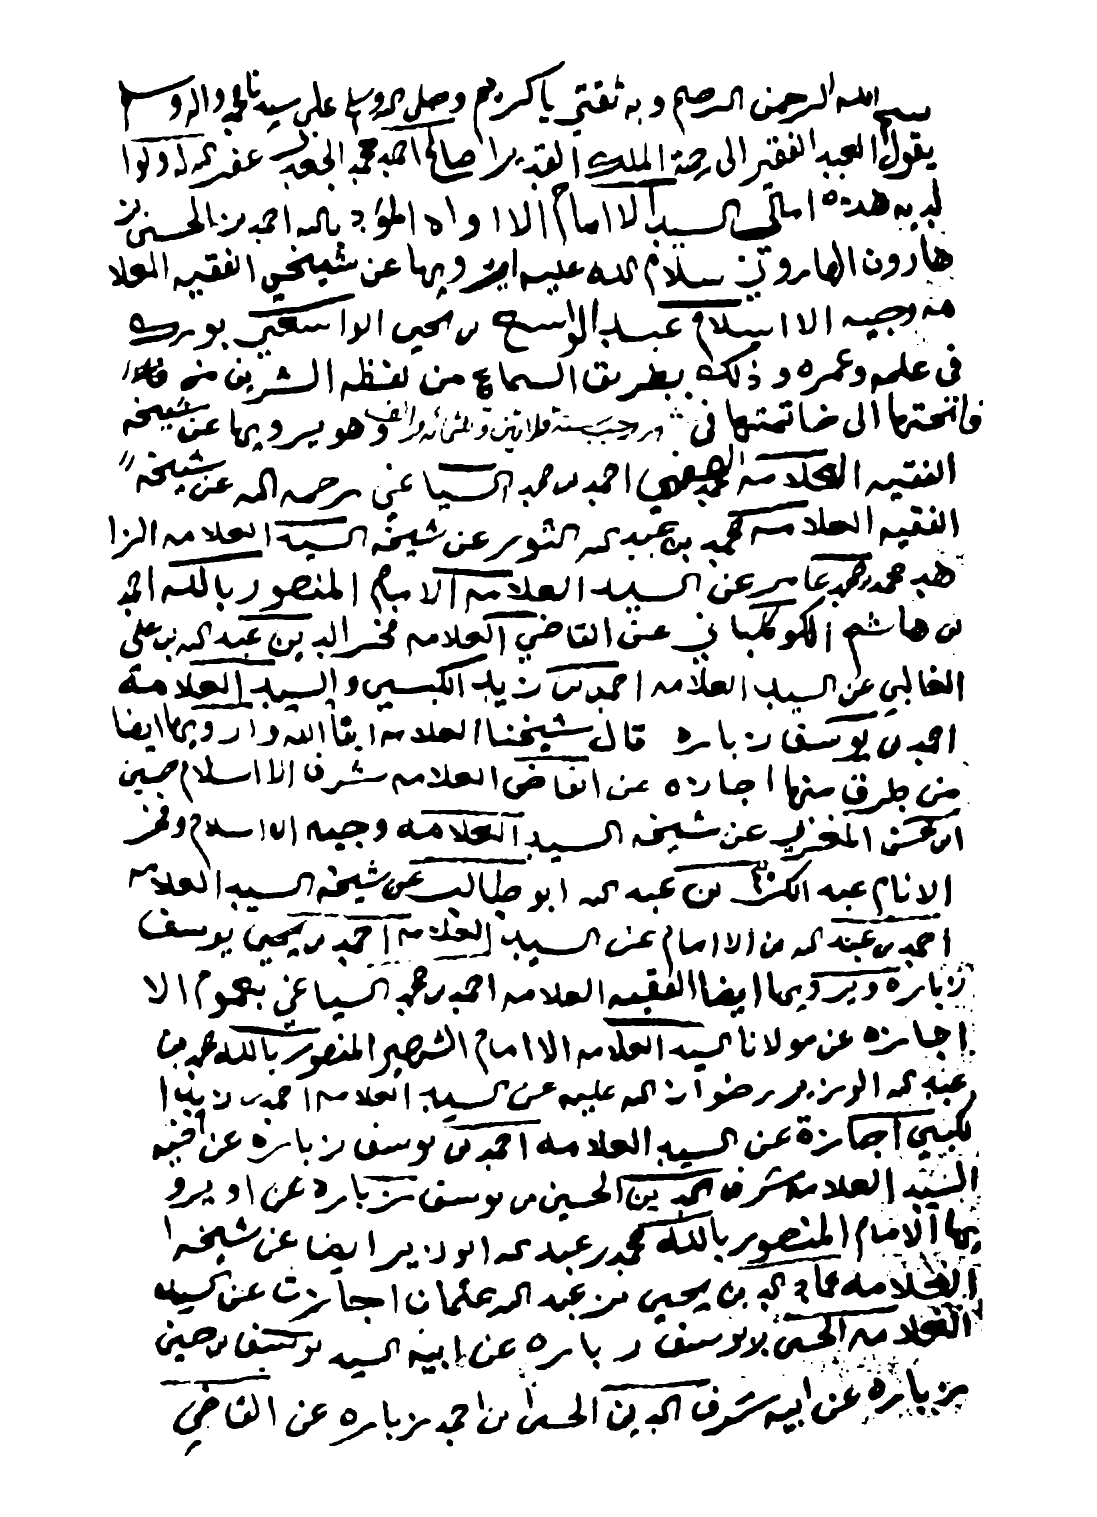 بسم الله الرحمن الرحيم وبه ثقتي يا كريم وصلى الله وسلم على سيدنا محمد واله وسلم
يقول العبد الفقير الى رحمة الملك القدير صالح احمد محمد غفر الله له ولوا
لديه هذه امالي السيد الاامام الااواه المؤيد بالله احمد بن الحسين بن
هارون الهاروني سلام الله عليه ارويها عن شيخي الفقيه العلا
مه وجيه الااسلام عبد الواسع بن يحيى الواسعي بورك
في علمه وعمره وذلك بطريق السماع من لفظه الشريف من
فاتحتها الى خاتمتها في رجب سنة وهو يرويها عن شيخه
الفقيه العلامه احمد بن محمد السياغي رحمه الله عن شيخه
الفقيه العلامه محمد بن عبد الله الثور عن شيخه السيد العلامه الزا
هد محمد بن محمد عامر عن السيد العلامه الامام المنصور بالله احمد
بن هاشم الكوكباني عن القاضي العلامه فخر الدين عبد الله بن علي
الغالبي عن السيد العلامه احمد بن زيد الكبسي والسيد العلامة
احمد بن يوسف زباره قال شيخنا العلامه ابقاالله وارويها ايضا
من طرق منها اجازه عن القاضي العلامه شرف الااسلام حسين
ابن محسن المغربي عن شيخه السيد العلامه وجيه الااسلام وفخر
الانام عبد الكريم بن عبد الله ابو طالب عن شيخه السيد العلامه
احمد بن عبد الله بن الاامام عن السيد العلامه احمد بن يحيى يوسف
زباره ويرويها ايضا الفقيه العلامه احمد بن محمد السياغي بعموم الا
اجازه عن مولانا السيد العلامه الاامام الشهير المنصور بالله محمد بن
عبد الله الوزير رضوان الله عليه عن السيد العلامه احمد بن زيد ا
لكبسي اجازة عن السيد العلامه احمد بن يوسف زباره عن اخيه
السيد العلامه شرف الدين الحسين بن يوسف زباره عن ا ويرو
يها الامام المنصور بالله محمد بن عبد الله الوزير ايضا عن شيخه ا
العلامه عماد الدين يحيى بن عبد الله عثمان اجازت عن السيد
العلامه الحسين بن يوسف زباره عن ابيه السيد يوسف بن حسين
زباره عن ابيه شرف الدين الحسين بن احمد زباره عن القاضي